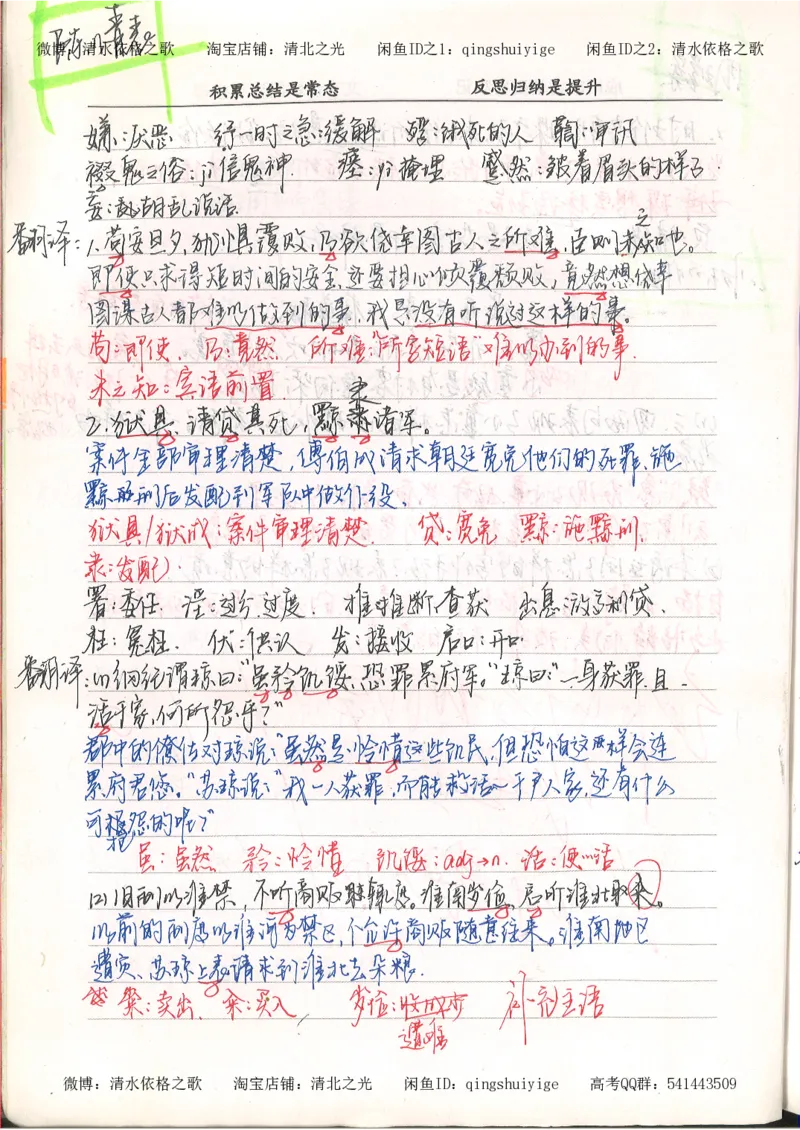 微博：清水依格之歌 淘宝店铺：清北之光 闲鱼ID之1：qingshuiyige 闲鱼ID之2：清水依格之歌
积累总结是常态 反思归纳是提升
嫌：厌恶 纾一时之急：缓解 殍：饿死的人 鞫：审讯
禨鬼之俗：jī信鬼神. 瘗：yì掩埋 蹙然：皱着眉头的样子.
妄：乱胡乱说话.
翻译：1.苟安旦夕，犹惧覆败，乃欲贷率图古人之所难，臣则未之知也。
即使只求得短时间的安全，还要担心倾覆颓败，竟然想贷率
图谋古人都难以做到的事，我是没有听说过这样的事。
苟：即使. 乃：竟然 所难：“所字短语”难以办到的事.
未之知：宾语前置.
2.狱具，请贷其死，黥隶诸军。
案件全部审理清楚，傅伯成请求朝廷宽免他们的死罪，施
黥刑后发配到军队中做仆役.
狱具/狱成：案件审理清楚. 贷：宽免 黥：施黥刑.
隶：发配).
署：委任. 淫：过分.过度. 推：推断，查获 出息：放高利贷.
枉：冤枉. 伏：供认 发：接收 启口：开口
翻译：(1)纲纪谓琼曰：“虽矜饥馁，恐罪累府君。”琼曰：“一身获罪，且
活千家，何所怨乎？”
郡中的僚佐对琼说：“虽然是怜惜这些饥民，但恐怕这样会连
累府君您。”苏琼说：“我一人获罪，而能救活一千户人家，还有什么
可抱怨的呢？”
虽：虽然 矜：怜惜 饥馁：adj→n. 活：使…活
(2)旧制以淮禁，不听商贩辄度。淮南岁俭，启听淮北取籴。
以前的制度以淮河为禁区，不允许商贩随意往来。淮南地区
遭灾，苏琼上表请求到淮北去籴粮.
粜：卖出. 籴：买入 岁俭：收成少 补充主语
遭难
微博：清水依格之歌 淘宝店铺：清北之光 闲鱼ID：qingshuiyige 高考QQ群：541443509